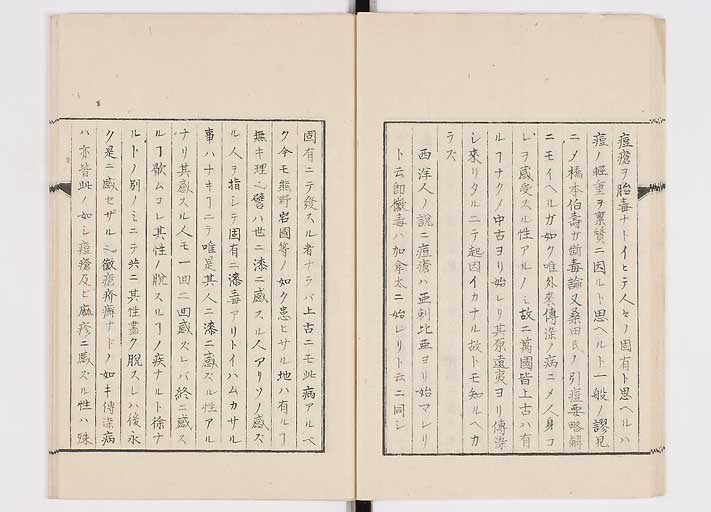 痘瘡ヲ胎毒ナトイヒテ人々ノ固有ト思ヘルハ
痘ノ軽重ヲ稟質ニ因ルト思ヘルト一般ノ謬見
ニメ橋本伯壽ガ断毒論又桑田氏ノ引痘要略解
ニモイヘルガ如ク唯外來傳染ノ病ニメ人身コ
レヲ感受スル性アルノミ故ニ萬國皆上古ハ有
ルヿナク中古ヨリ始レリ其原遠夷ヨリ傳染
シ來リタルニテ起因イカナル故トモ知ルヘカ
ラズ
西洋人ノ説ニ痘瘡ハ亜剌比亜ヨリ始マレリ
ト云即黴毒ハ加拿太ニ始レリト云ニ同シ
固有ニテ發スル者ナラバ上古ニモ此病アルベ
ク今モ熊野岩國等ノ如ク患ヒサル地ハ有ルヿ
無キ理也譬ハ世ニ漆ニ感スル人アリソノ感ズ
ル人ヲ指シテ固有ニ漆毒アリトイハムカサル
事ハナキヿニテ唯是其人ニ漆ニ感ズル性アル
ナリ其感スル人モ一回二回感ズレバ終ニ感ス
ルヿ歇ムコレ其性ノ脱スルヿノ疾ナルト徐ナ
ルトノ別ノミニテ共ニ其性盡ク脱スレハ後永
ク是ニ感セザル也黴瘡疥癬ナドノ如キ傳染病
ハ亦皆此ノ如シ痘瘡及ビ麻疹ニ感ズル性ハ殊